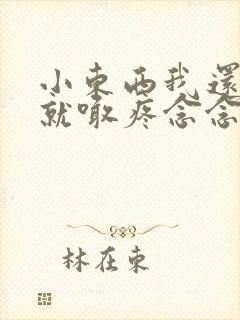 小東西我還
就喊疼念念
林在東